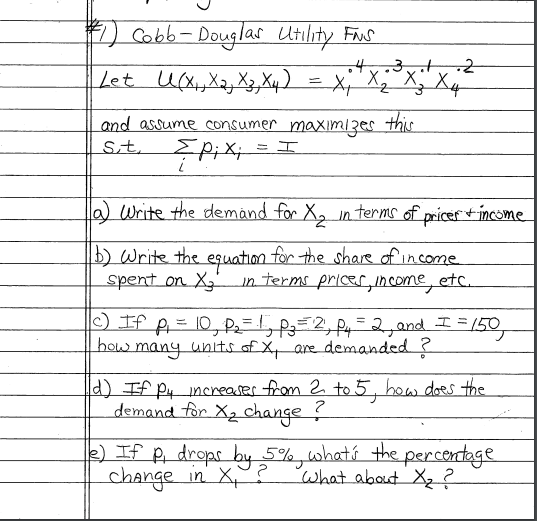 #1) Cobb-Douglas Utility FNS
Let U(X₁, X₂, X₃, X₄) = X₁^.4 X₂^.3 X₃^.1 X₄^.2
and assume consumer maximizes this
s.t. Σᵢ pᵢ xᵢ = I
a) Write the demand for X₂ in terms of prices + income
b) Write the equation for the share of income
spent on X₃ in terms prices, income, etc.
c) If p₁ = 10, p₂ = 1, p₃ = 2, p₄ = 2, and I = 150,
how many units of X₁ are demanded ?
d) If p₄ increases from 2 to 5, how does the
demand for X₂ change ?
e) If p₁ drops by 5%, what's the percentage
change in X₁ ? What about X₂ ?